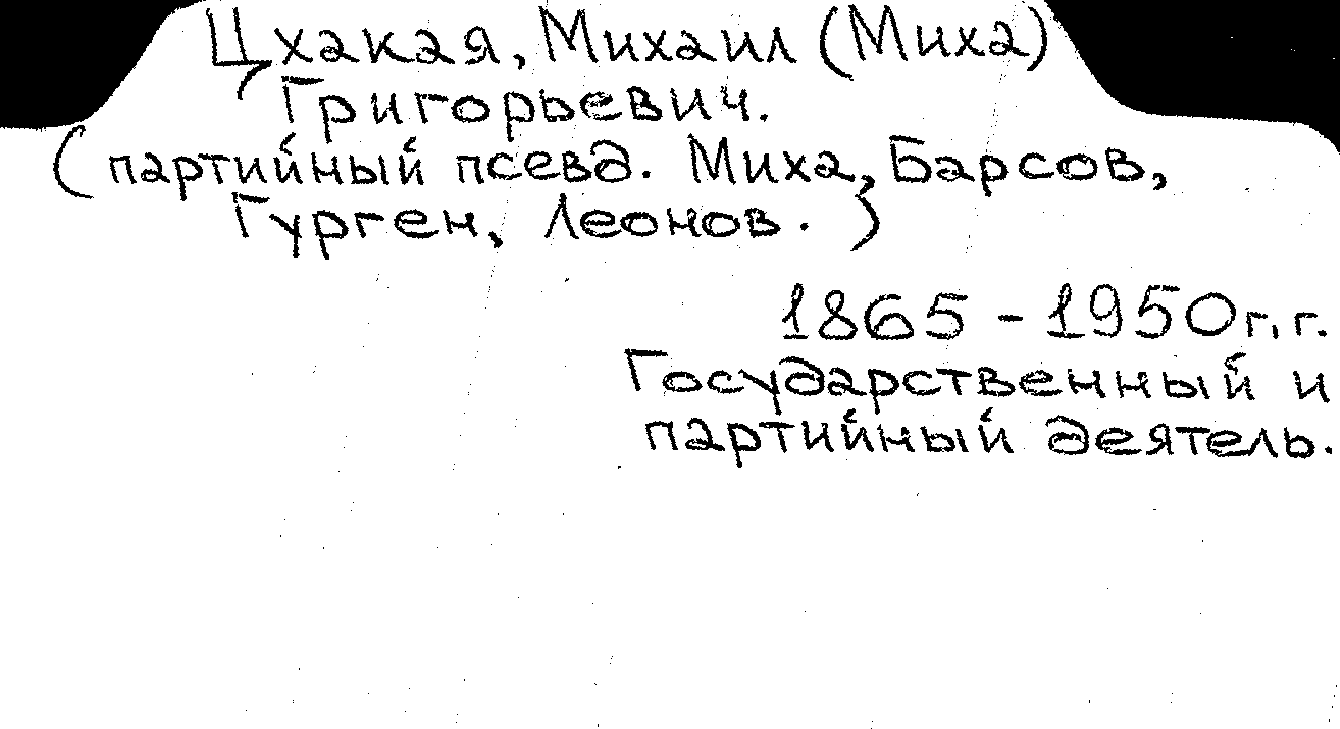 Цхакая, Михаил (Миха)
Григорьевич.
(партийный псевд. Миха, Барсов,
Гурген, Леонов.)
1865 - 1950 г.г.
Государственный и
партийный деятель.